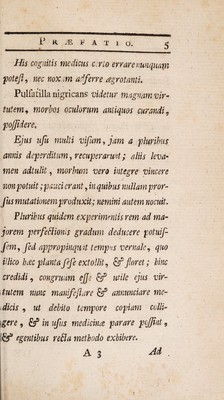 PRÆFATIO. 5
His cognitis medicus certo errare nunquam
potest, nec noxam adferre ægrotanti.
Pulsatilla nigricans videtur magnam vir-
tutem, morbos oculorum antiquos curandi,
possidere.
Ejus usu multi visum, jam a pluribus
annis deperditum, recuperarunt; aliis leva-
men adtulit, morbum vero integre vincere
non potuit; pauci erant, in quibus nullam pror-
sus mutationem produxit; nemini autem nocuit.
Pluribus quidem experimentis rem ad ma-
jorem perfectionis gradum deducere potuis-
sem, sed appropinquat tempus vernale, quo
illico hæc planta sese extollit, & floret; hinc
credidi, congruum esse & utile ejus vir-
tutem nunc manifestare & annunciare me-
dicis, ut debito tempore copiam colli-
gere, & in usus medicinæ parare possint,
& egentibus recta methodo exhibere.
A 3 Ad